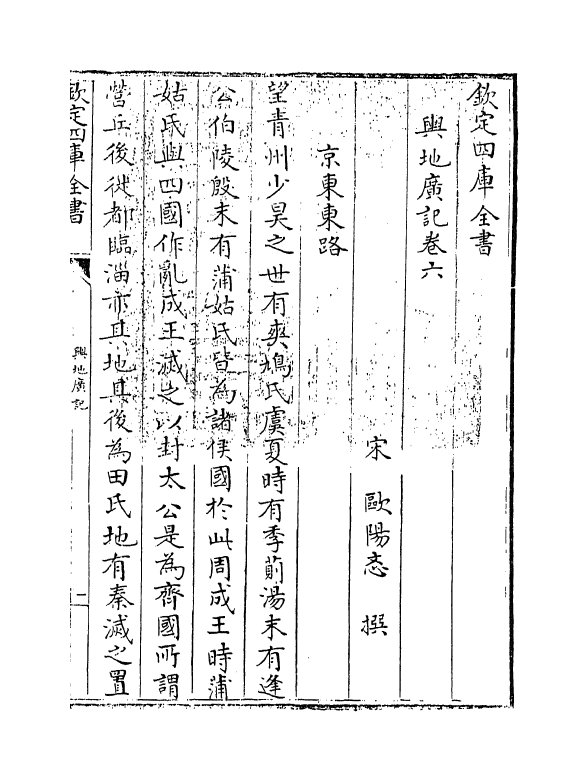 欽定四庫全書
輿地廣記卷六
宋 歐陽忞 撰
京東東路
望青州少昊之世有爽鳩氏虞夏時有季萴湯末有逢
公伯陵殷末有蒲姑氏皆為諸侯國於此周成王時蒲
姑氏與四國作亂成王滅之以封太公是為齊國所謂
營丘後徙都臨淄亦其地其後為田氏地有秦滅之置
欽定四庫全書
輿地廣記
一